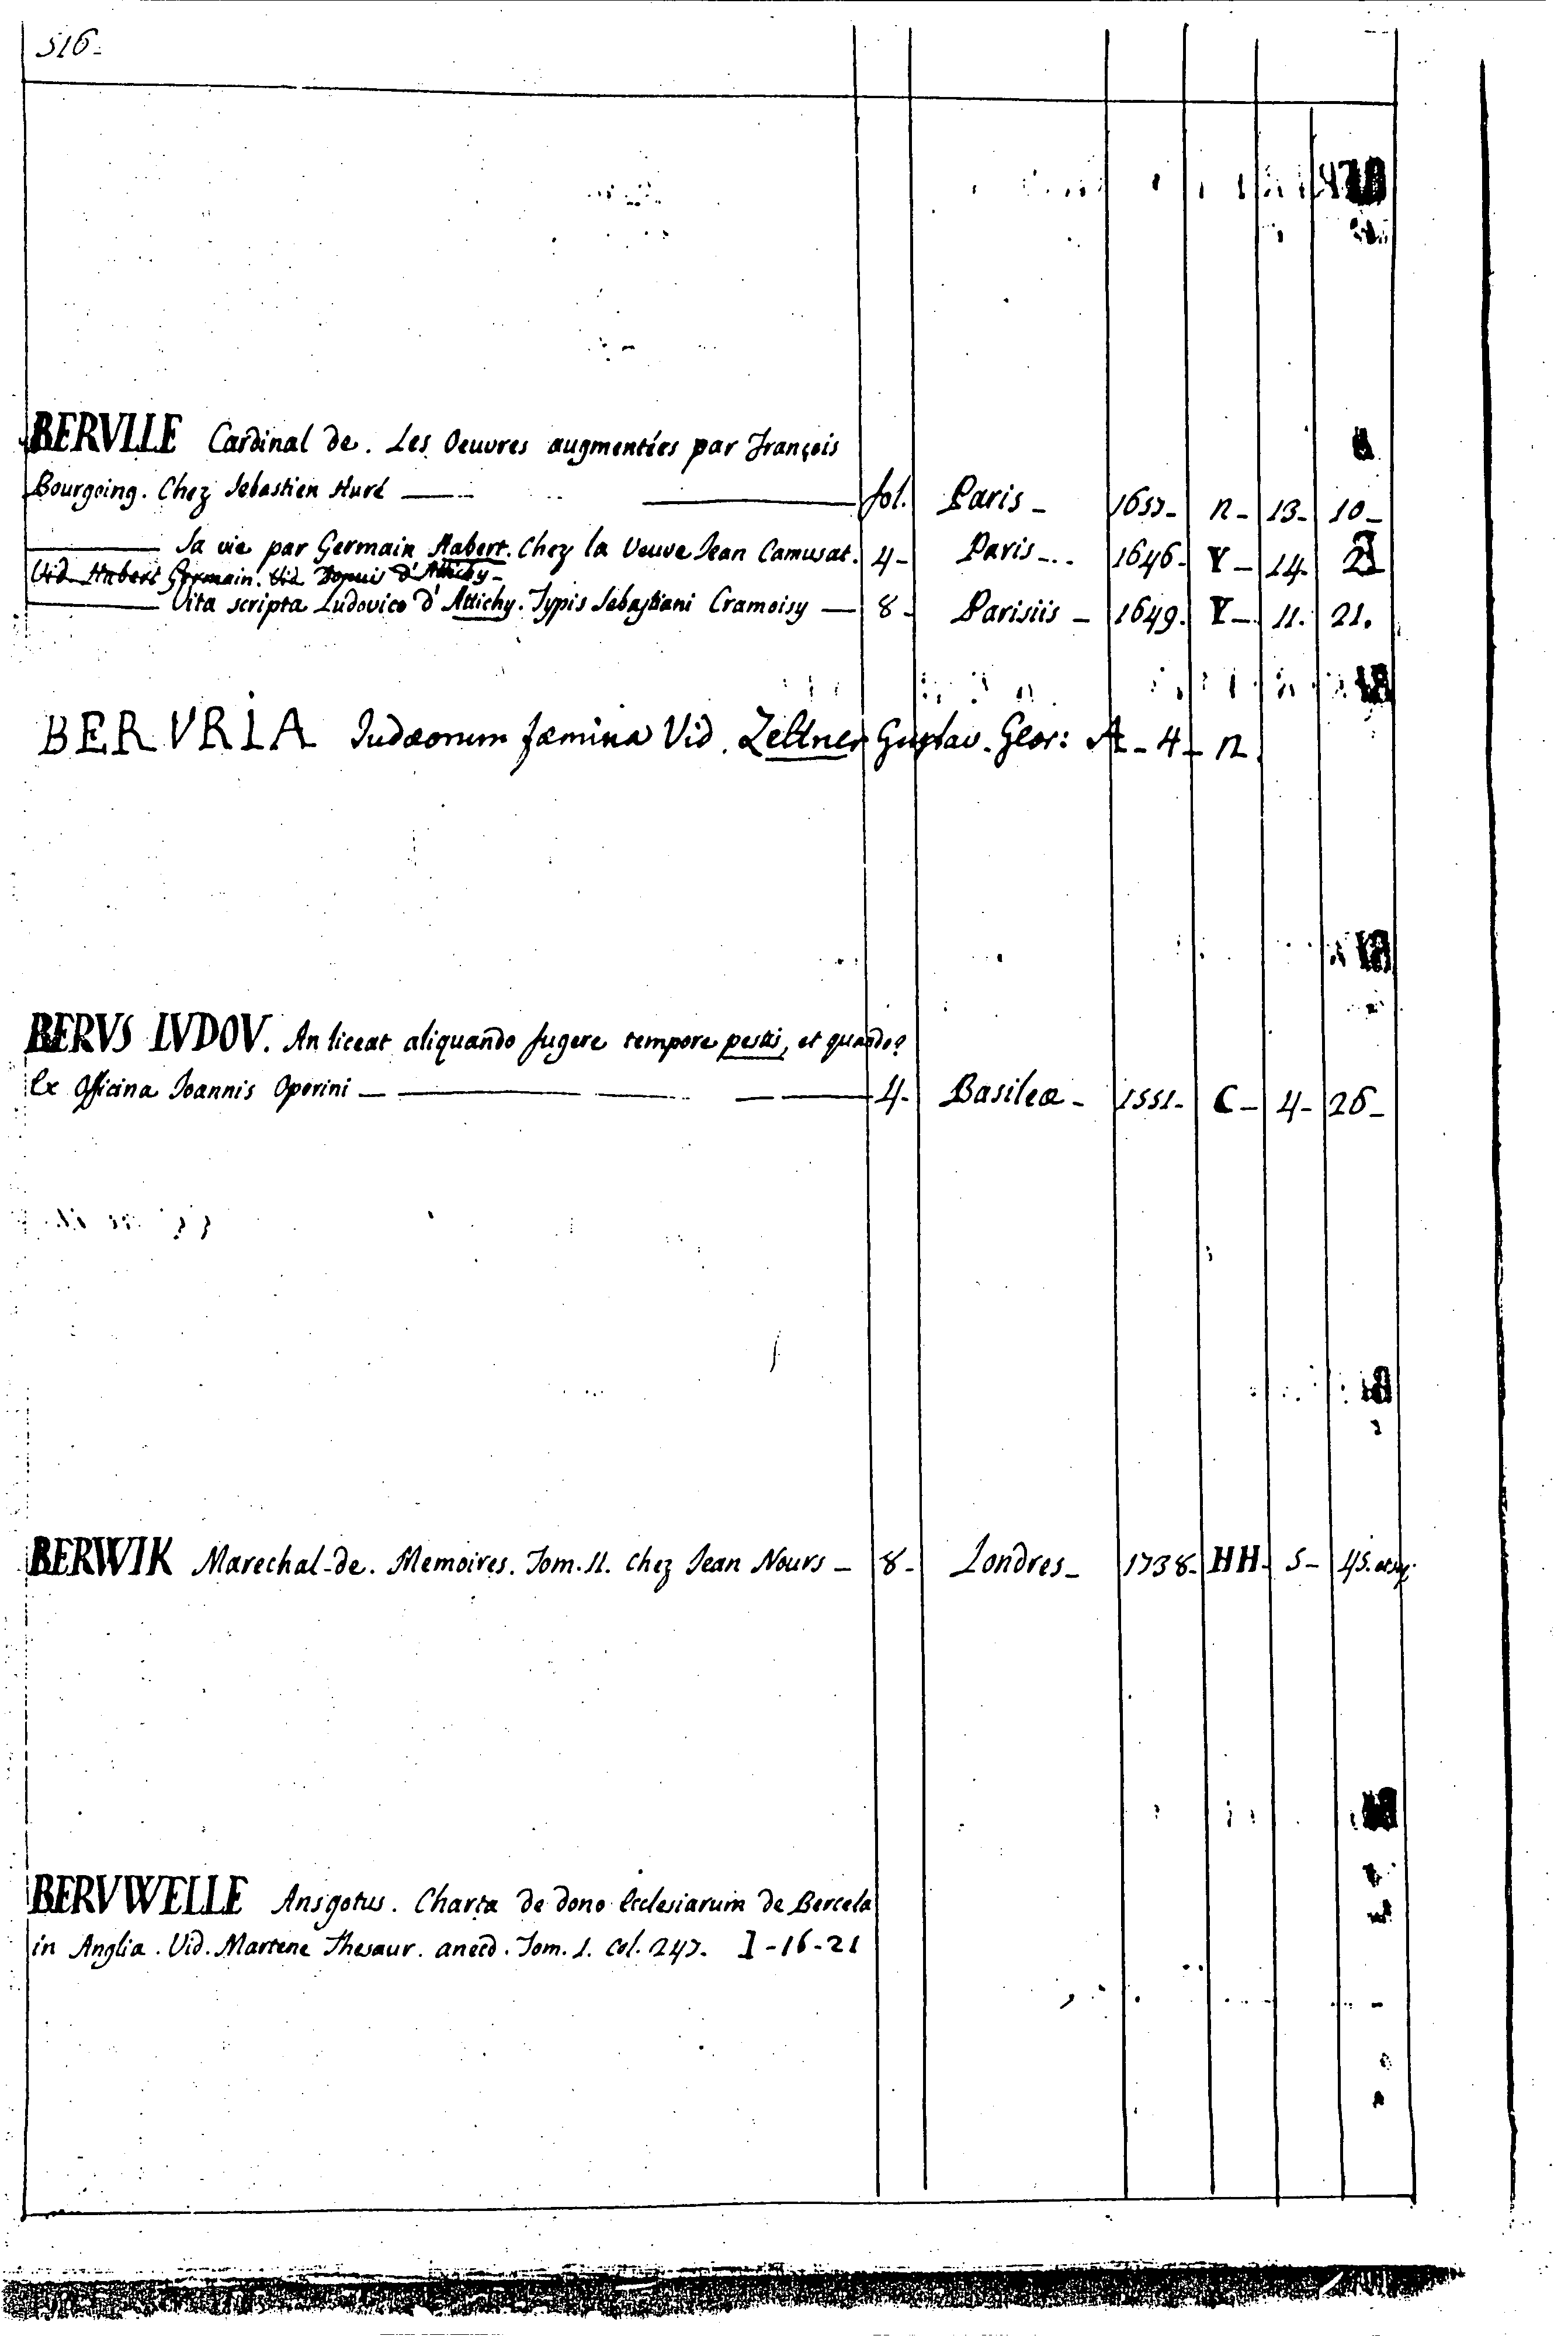 516.
BERVLLE Cardinal de. Les Oeuvres augmentées par François
Bourgoing. Chez Sebastien Huré — fol. Paris - 1657- n- 13- 10-
— Sa vie par Germain Habert. Chez la Veuve Jean Camusat. 4- Paris - 1646- Y- 14. 2
Vid. Habert Germain. Vid d'Attichy-
— Vita scripta Ludovico d'Attichy. Typis Sebastiani Cramoisy — 8- Parisiis - 1649. Y-. 11. 21.
BERVRIA Iudæorum fæmina Vid. Zeltner Gustav. Geor: A-4-n.
BERVS LVDOV. An liceat aliquando fugere tempore pestis, et quando?
Ex Officina Ioannis Oporini — 4- Basileæ - 1551- C- 4- 26-
BERWIK Marechal-de. Memoires. Tom. II. chez Jean Nours - 8- Londres- 1738- HH- 5- 45. et seq.
BERVWELLE Ansgotus. Charta de dono Ecclesiarum de Bercela
in Anglia. Vid. Martene Thesaur. anecd. Tom. 1. Col. 247. I-16-21